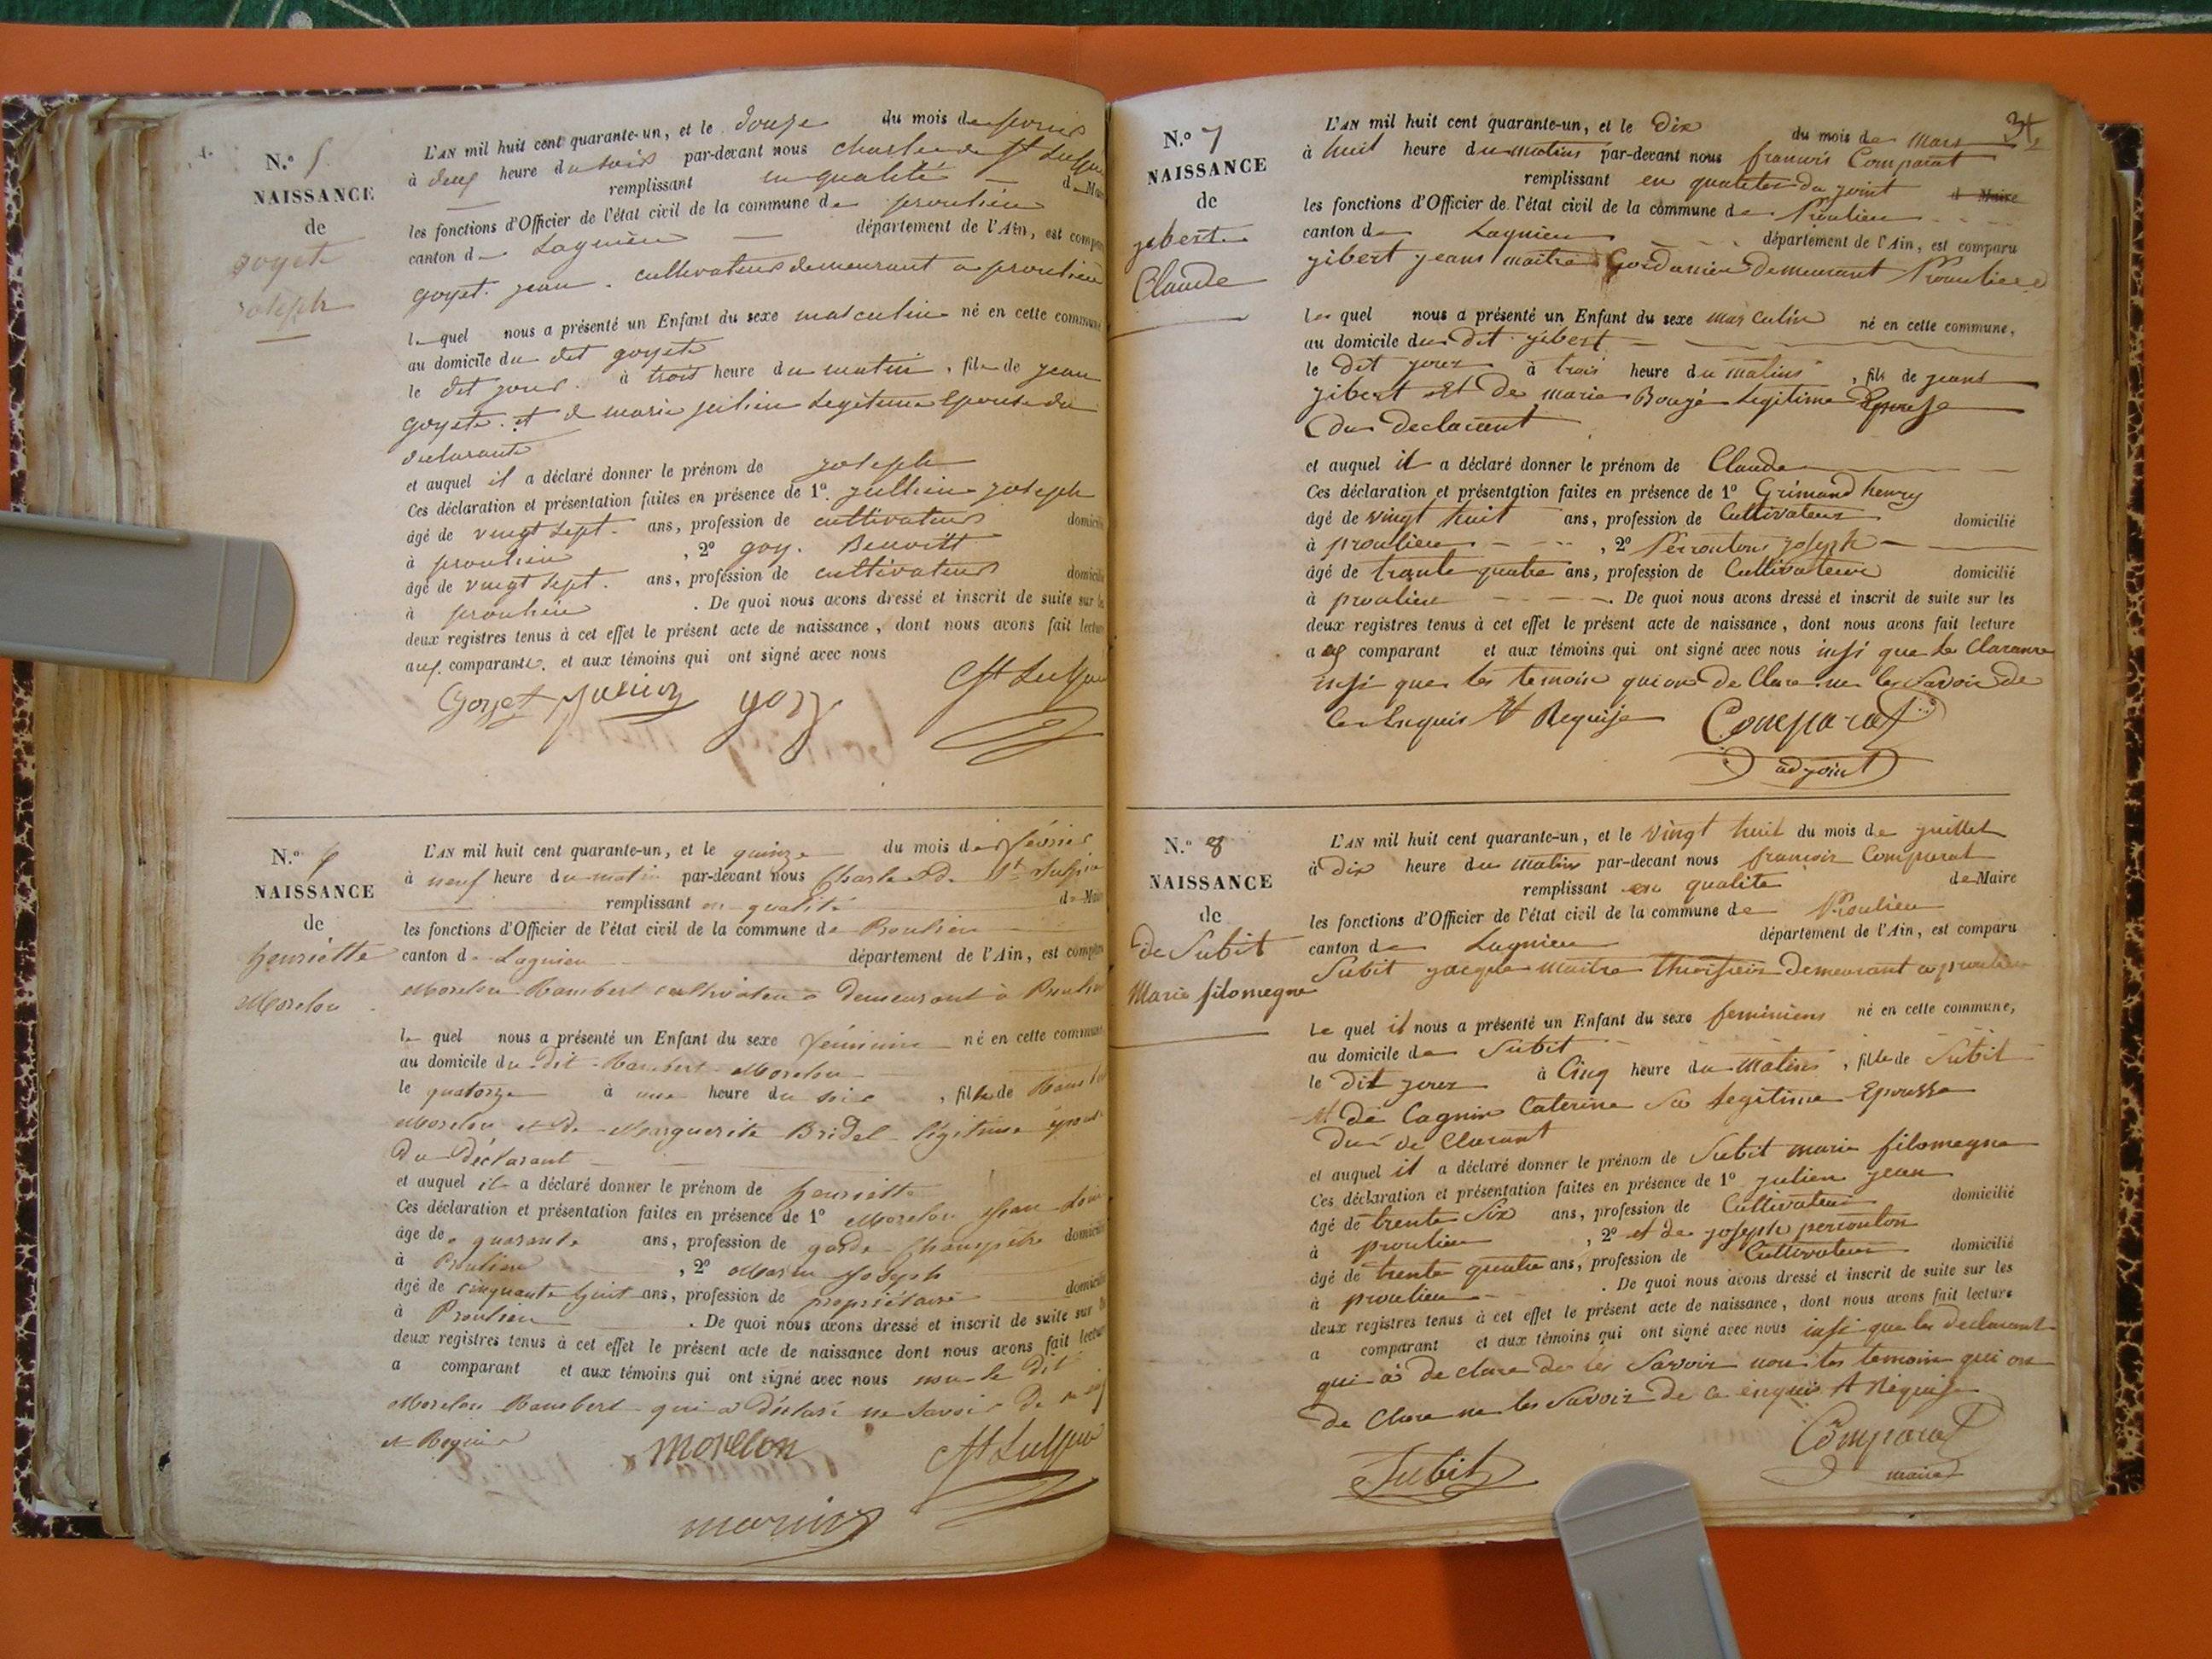 N.° 5
NAISSANCE
de
goyet
joseph
L'AN mil huit cent quarante-un, et le douze du mois de fevrier
à deux heure du soir par-devant nous Charles de St Sulpice
remplissant en qualité de Maire
les fonctions d'Officier de l'état civil de la commune de proulieu
canton de Lagnieu département de l'Ain, est comparu
goyet jean cultivateur demeurant a proulieu
le quel nous a présenté un Enfant du sexe masculin né en cette commune
au domicile du dit goyet
le dit jour à trois heure du matin, fils de jean
goyet et de marie jullien Legitime Epouse du
declarant
et auquel il a déclaré donner le prénom de joseph
Ces déclaration et présentation faites en présence de 1° jullien joseph
âgé de vingt sept ans, profession de cultivateur domicilié
à proulieu, 2° goy Benoitt
âgé de vingt sept ans, profession de cultivateur domicilié
à proulieu. De quoi nous avons dressé et inscrit de suite sur les
deux registres tenus à cet effet le présent acte de naissance, dont nous avons fait lecture
aux comparants et aux témoins qui ont signé avec nous
Goyet jullien goy St Sulpice
N.° 6
NAISSANCE
de
henriette
Morelon
L'AN mil huit cent quarante-un, et le quinze du mois de février
à neuf heure du matin par-devant nous Charles de St Sulpice
remplissant en qualité de Maire
les fonctions d'Officier de l'état civil de la commune de Proulieu
canton de Lagnieu département de l'Ain, est comparu
Morelon Rambert cultivateur à demeurant à Proulieu
le quel nous a présenté un Enfant du sexe féminin né en cette commune
au domicile du dit Rambert Morelon
le quatorze à une heure du soir, fille de Rambert
Morelon et de Marguerite Bridel légitime épouse
du Déclarant
et auquel il a déclaré donner le prénom de henriette
Ces déclaration et présentation faites en présence de 1° Morelon jean
âgé de quarante ans, profession de garde Champêtre domicilié
à Proulieu, 2° Marin Joseph
âgé de cinquante huit ans, profession de propriétaire domicilié
à Proulieu. De quoi nous avons dressé et inscrit de suite sur les
deux registres tenus à cet effet le présent acte de naissance dont nous avons fait lecture
a comparant et aux témoins qui ont signé avec nous non le Dit
Morelon Rambert qui a déclaré ne Savoir De ce enquis
et Requis
Morelon St Sulpice
marin
34
N.° 7
NAISSANCE
de
jibert
Claude
L'AN mil huit cent quarante-un, et le Dix du mois de Mars
à huit heure du matins par-devant nous francois Comparat
remplissant en qualiter da joint d Maire
les fonctions d'Officier de l'état civil de la commune de Proulieu
canton de Lagnieu département de l'Ain, est comparu
jibert jeans maitre Cordonnier Demeurant Proulieu
le quel nous a présenté un Enfant du sexe masculin né en cette commune,
au domicile du Dit jibert
le dit jour à trois heure du matins, fils de jeans
jibert et De marie Bougé Legitime Epouse
du Declarant
et auquel il a déclaré donner le prénom de Claude
Ces déclaration et présentation faites en présence de 1° Grimand henry
âgé de vingt huit ans, profession de Cultivateur domicilié
à proulieu, 2° Perrouton joseph
âgé de trante quatre ans, profession de Cultivateur domicilié
à proulieu. De quoi nous avons dressé et inscrit de suite sur les
deux registres tenus à cet effet le présent acte de naissance, dont nous avons fait lecture
a comparant et aux témoins qui ont signé avec nous insi que Le Claranre
insi que les temoin qui on De Clare ne les Savoir De
Ce Enquis Et Requise Comparat
adjoint
N.° 8
NAISSANCE
de
de Subit
Marie filomegne
L'AN mil huit cent quarante-un, et le vingt huit du mois de juillet
à dix heure du matins par-devant nous francois Comparat
remplissant en qualite de Maire
les fonctions d'Officier de l'état civil de la commune de Proulieu
canton de Lagnieu département de l'Ain, est comparu
Subit jacque maitre demeurant a proulieu
Le quel il nous a présenté un Enfant du sexe feminiens né en cette commune,
au domicile de Subit
le dit jour à Cinq heure du matins, fille de Subit
Et de Cagnin Caterine Sa Legitime Epousse
du de Clarant
et auquel il a déclaré donner le prénom de Subit marie filomegne
Ces déclaration et présentation faites en présence de 1° julien jean
âgé de trente Six ans, profession de Cultivateur domicilié
à proulieu, 2° et de joseph perrouton
âgé de trente quatre ans, profession de Cultivateur domicilié
à proulieu. De quoi nous avons dressé et inscrit de suite sur les
deux registres tenus à cet effet le présent acte de naissance, dont nous avons fait lecture
a comparant et aux témoins qui ont signé avec nous insi que les declarant
qui à de clare de les Savoir non les temoin qui on
de Clare ne les Savoir de ce enquis Et Réquise
Subit Comparat
maire